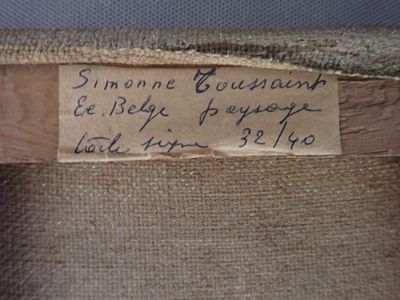 Simonne Toussaint
Ec. Belge paysage
toile signe 32/40